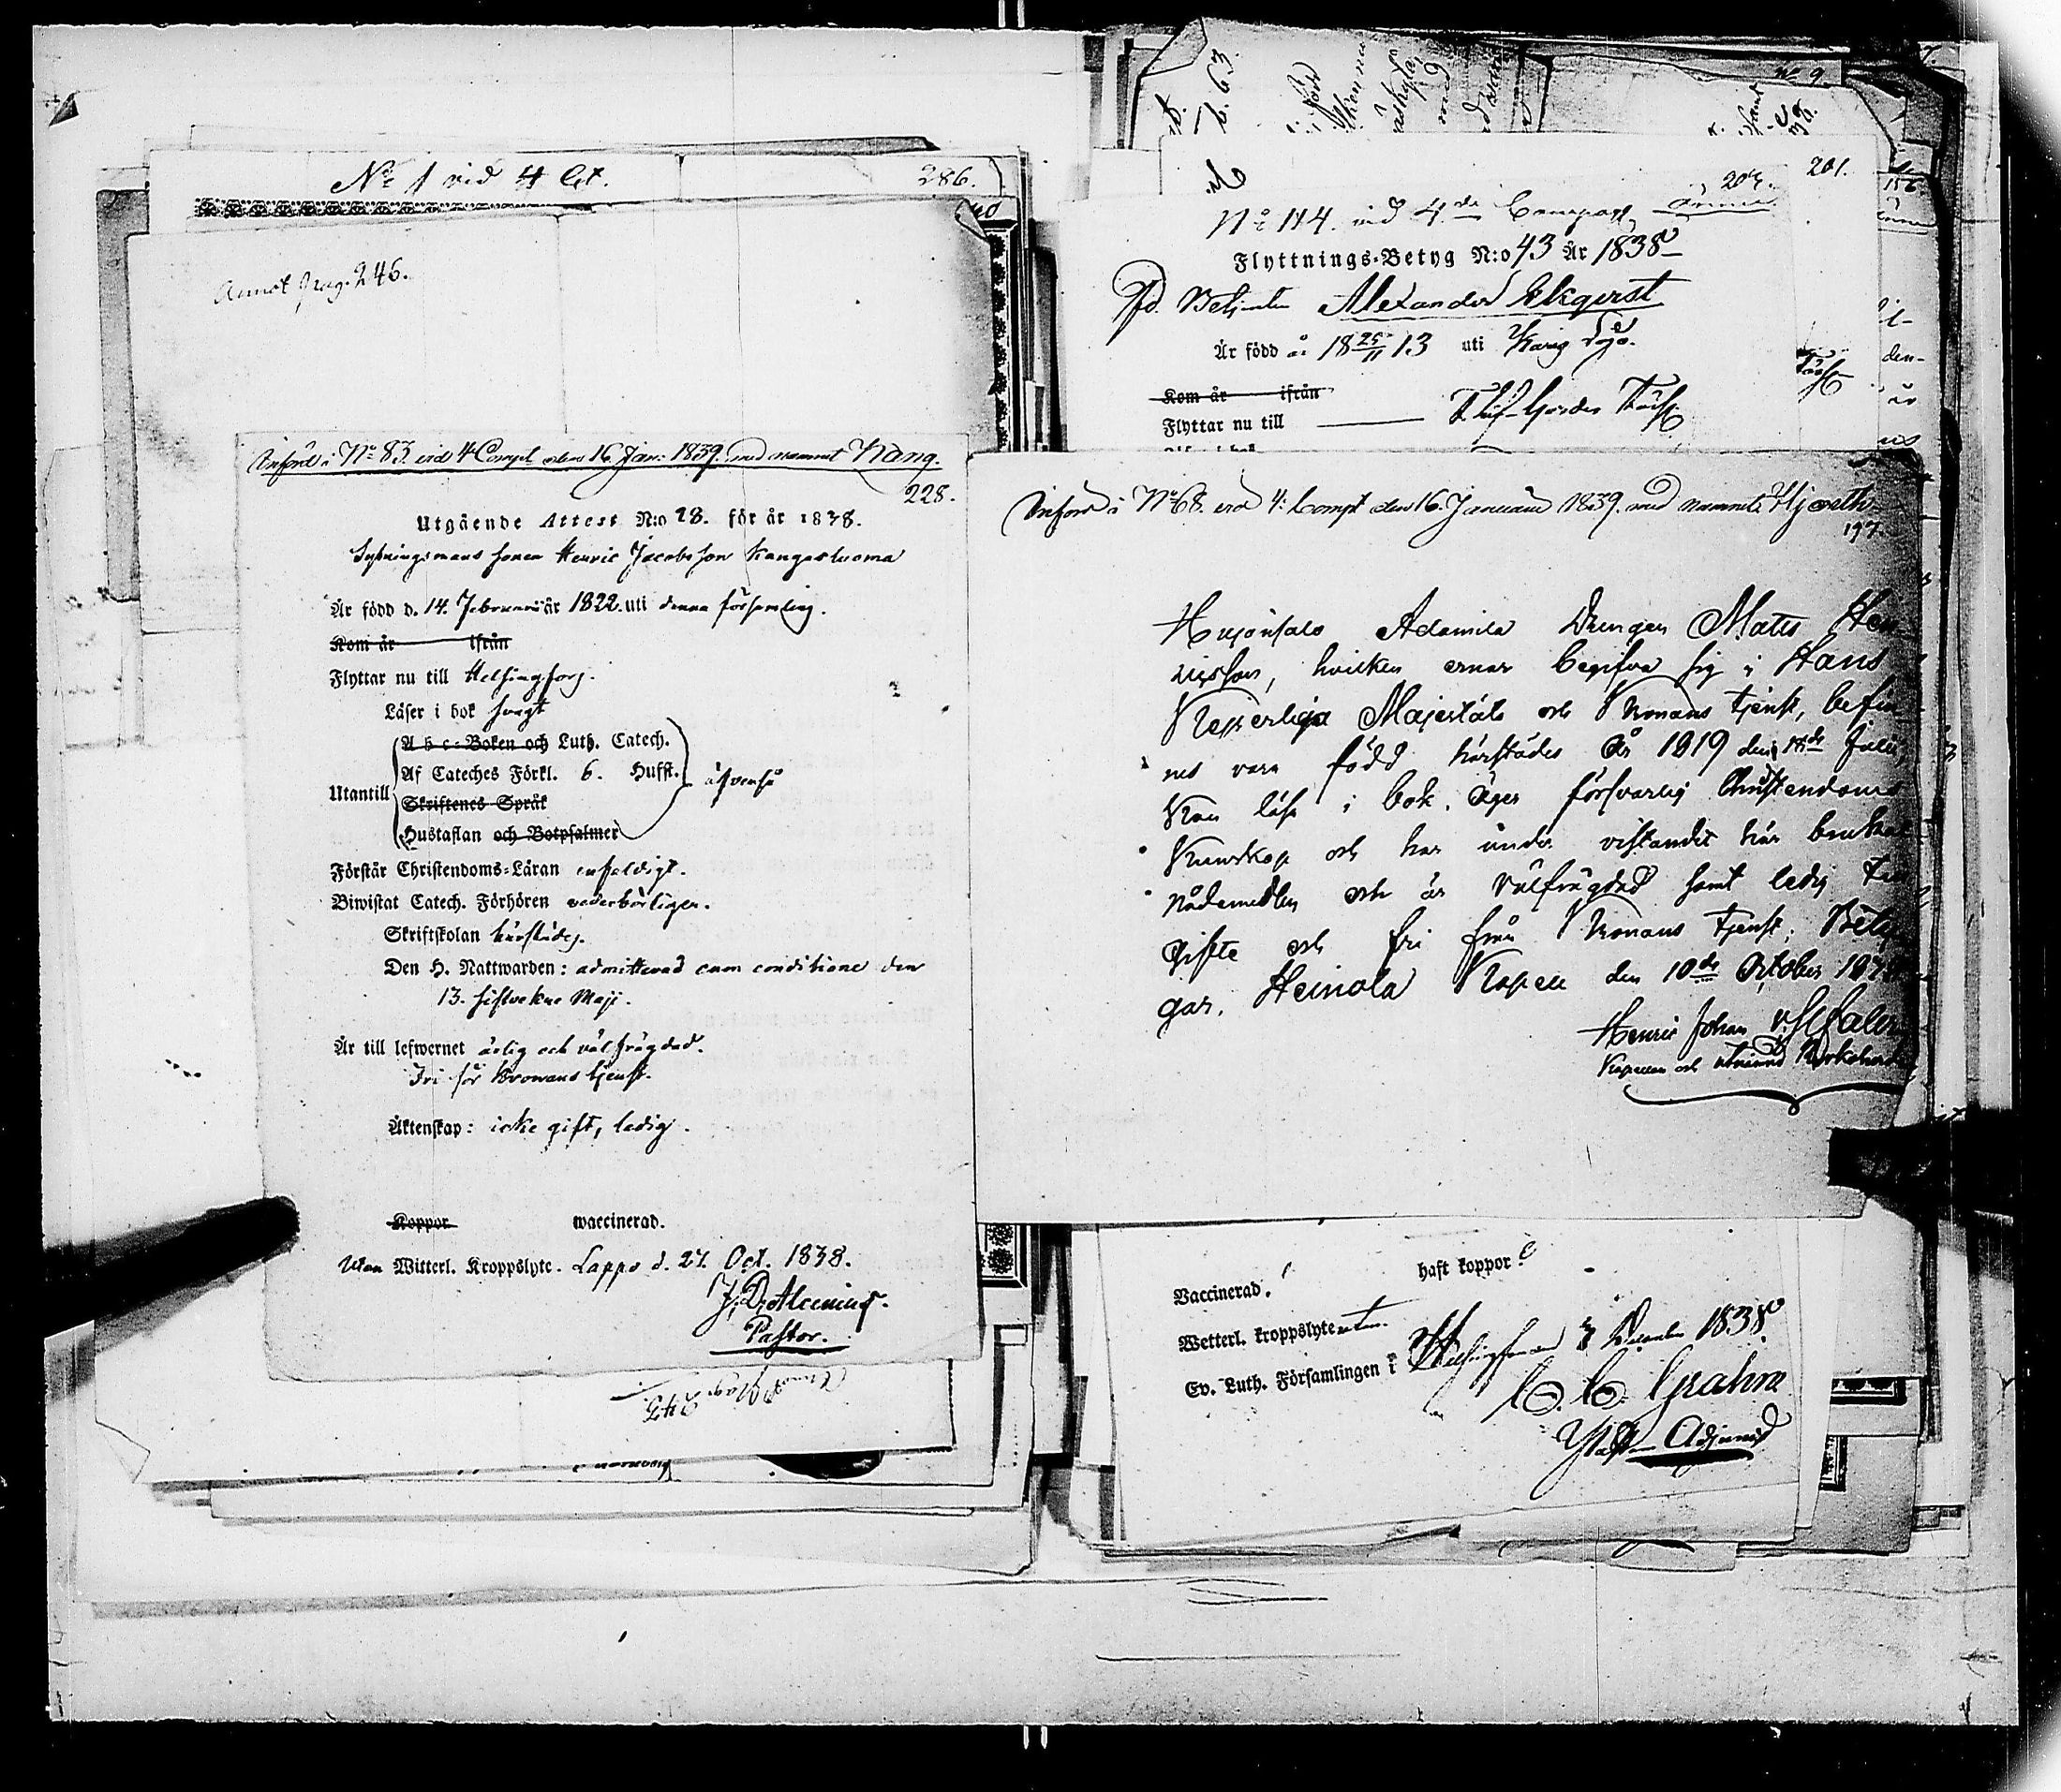 No 1 vid 4 Ct.
286.
Annot pag. 246.
Införd i No 83 vid 4 Comp. den 16 Jan: 1839. med namnet Kang.
228.
Utgående Attest N:o 28. för år 1838.
Sytningsmans sonen Henric Jacobsson Kangasluoma
Är född d. 14. Februarii år 1822. uti denna församling.
Kom år ifrån
Flyttar nu till Helsingfors.
Läser i bok svagt
Utantill
A b c-Boken och Luth. Catech.
Af Cateches Förkl. 6. Hufst.
äfvenså
Skriftenes Språk
Hustaflan och Botpsalmer
Förstår Christendoms-Läran enfaldigt.
Biwistat Catech. Förhören vederbörligen.
Skriftskolan härstädes.
Den H. Nattwarden: admitterad cum conditione den
13. sistvekne Maji.
Är till lefwernet ärlig och välfrägdad.
Fri för Kronans tjenst.
Äktenskap: icke gift, ledig.
Koppor waccinerad.
Utan Witterl. Kroppslyte. Lappo d. 27. Oct. 1838.
Pastor.
Annot Pag. 245
No 9.
201.
207.
No 114. vid 4.de Compagn
Flyttnings-Betyg N:o 43 År 1838
Fd. Betjenten Alexander Ekqvist
Är född år 18 25/11 13 uti Karis Lojo.
Kom år ifrån
Flyttar nu till
Införd i No 68. vid 4: Compt den 16. Januarii 1839. med namnet Hjorth
197.
Adamila Drengen Mats Hen-
ricsson, hvilken ernar begifva sig i Hans
Kejserliga Majestäts och Kronans tjenst, befin-
nes vara född härstädes År 1819 den 18de Julii,
Kan läsa i bok, äger försvarlig Christendoms
Kunskap och har under vistandet här brukat
nådemedlen och är välfrägdad samt ledig till
gifte och fri från Kronans tjenst; Bety-
gar. Heinola Kapell den 10de October 1838
Henric Johan
Vaccinerad. haft koppor
Wetterl. kroppslyte utan.
Ev. Luth. Församlingen i Helsingfors d 3 December 1838
C. C. Grahn
Adjunct